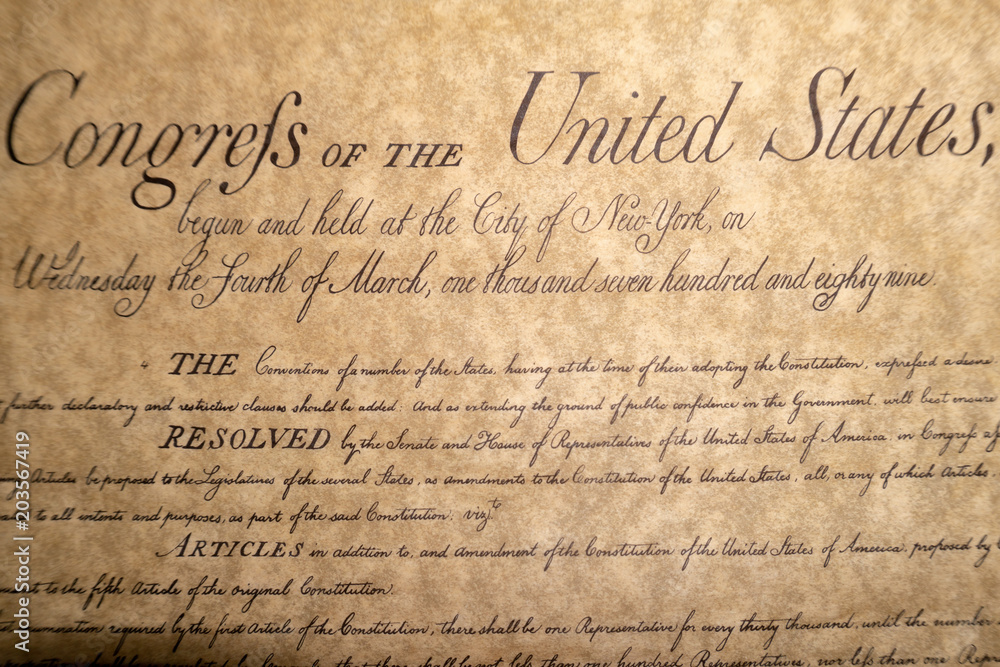 Congreſs OF THE United States,
begun and held at the City of New-York, on
Wednesday the Fourth of March, one thousand seven hundred and eighty nine.
THE Conventions of a number of the States, having at the time of their adopting the Constitution, expreſsed a desire
further declaratory and restrictive clauses should be added: And as extending the ground of public confidence in the Government, will best ensure
RESOLVED by the Senate and House of Representatives of the United States of America, in Congreſs
Articles be proposed to the Legislatures of the several States, as amendments to the Constitution of the United States, all, or any of which Articles,
to all intents and purposes, as part of the said Constitution; vizt.
ARTICLES in addition to, and amendment of the Constitution of the United States of America, proposed by
to the fifth Article of the original Constitution.
enumeration required by the first Article of the Constitution, there shall be one Representative for every thirty thousand, until the number
that there shall be not leſs than one hundred Representatives, nor leſs than one
Adobe Stock | #203567419